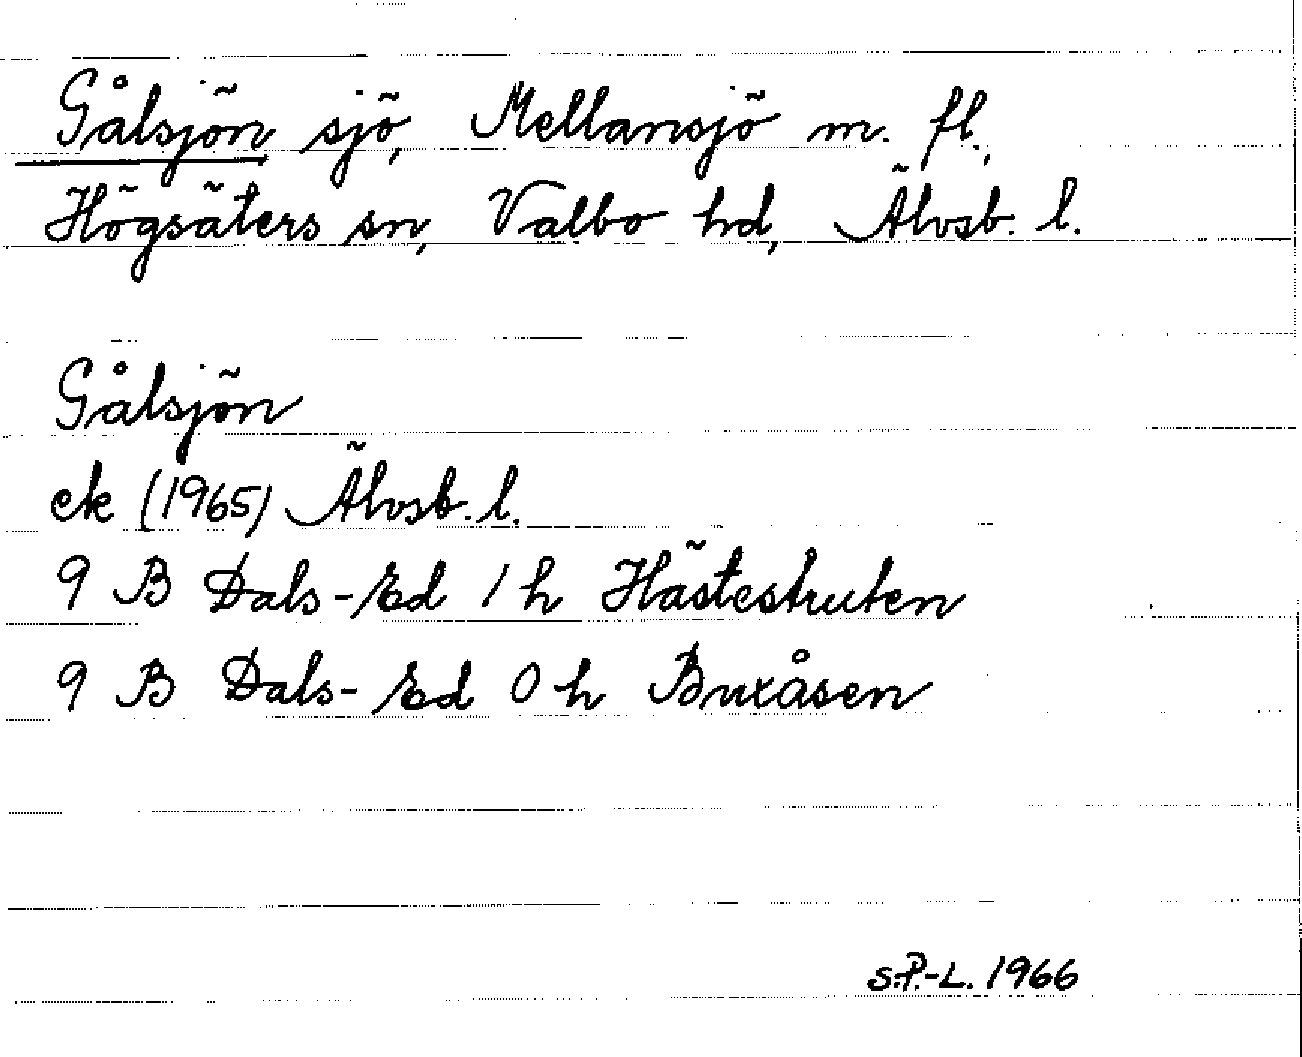 Gålsjön sjö, Mellansjö m. fl.,
Högsäters sn, Valbo hd, Älvsb. l.
Gålsjön
ek (1965) Älvsb. l.
9 B Dals-Ed 1 h Hästestruten
9 B Dals-Ed 0 h Buxåsen
S.P.-L. 1966